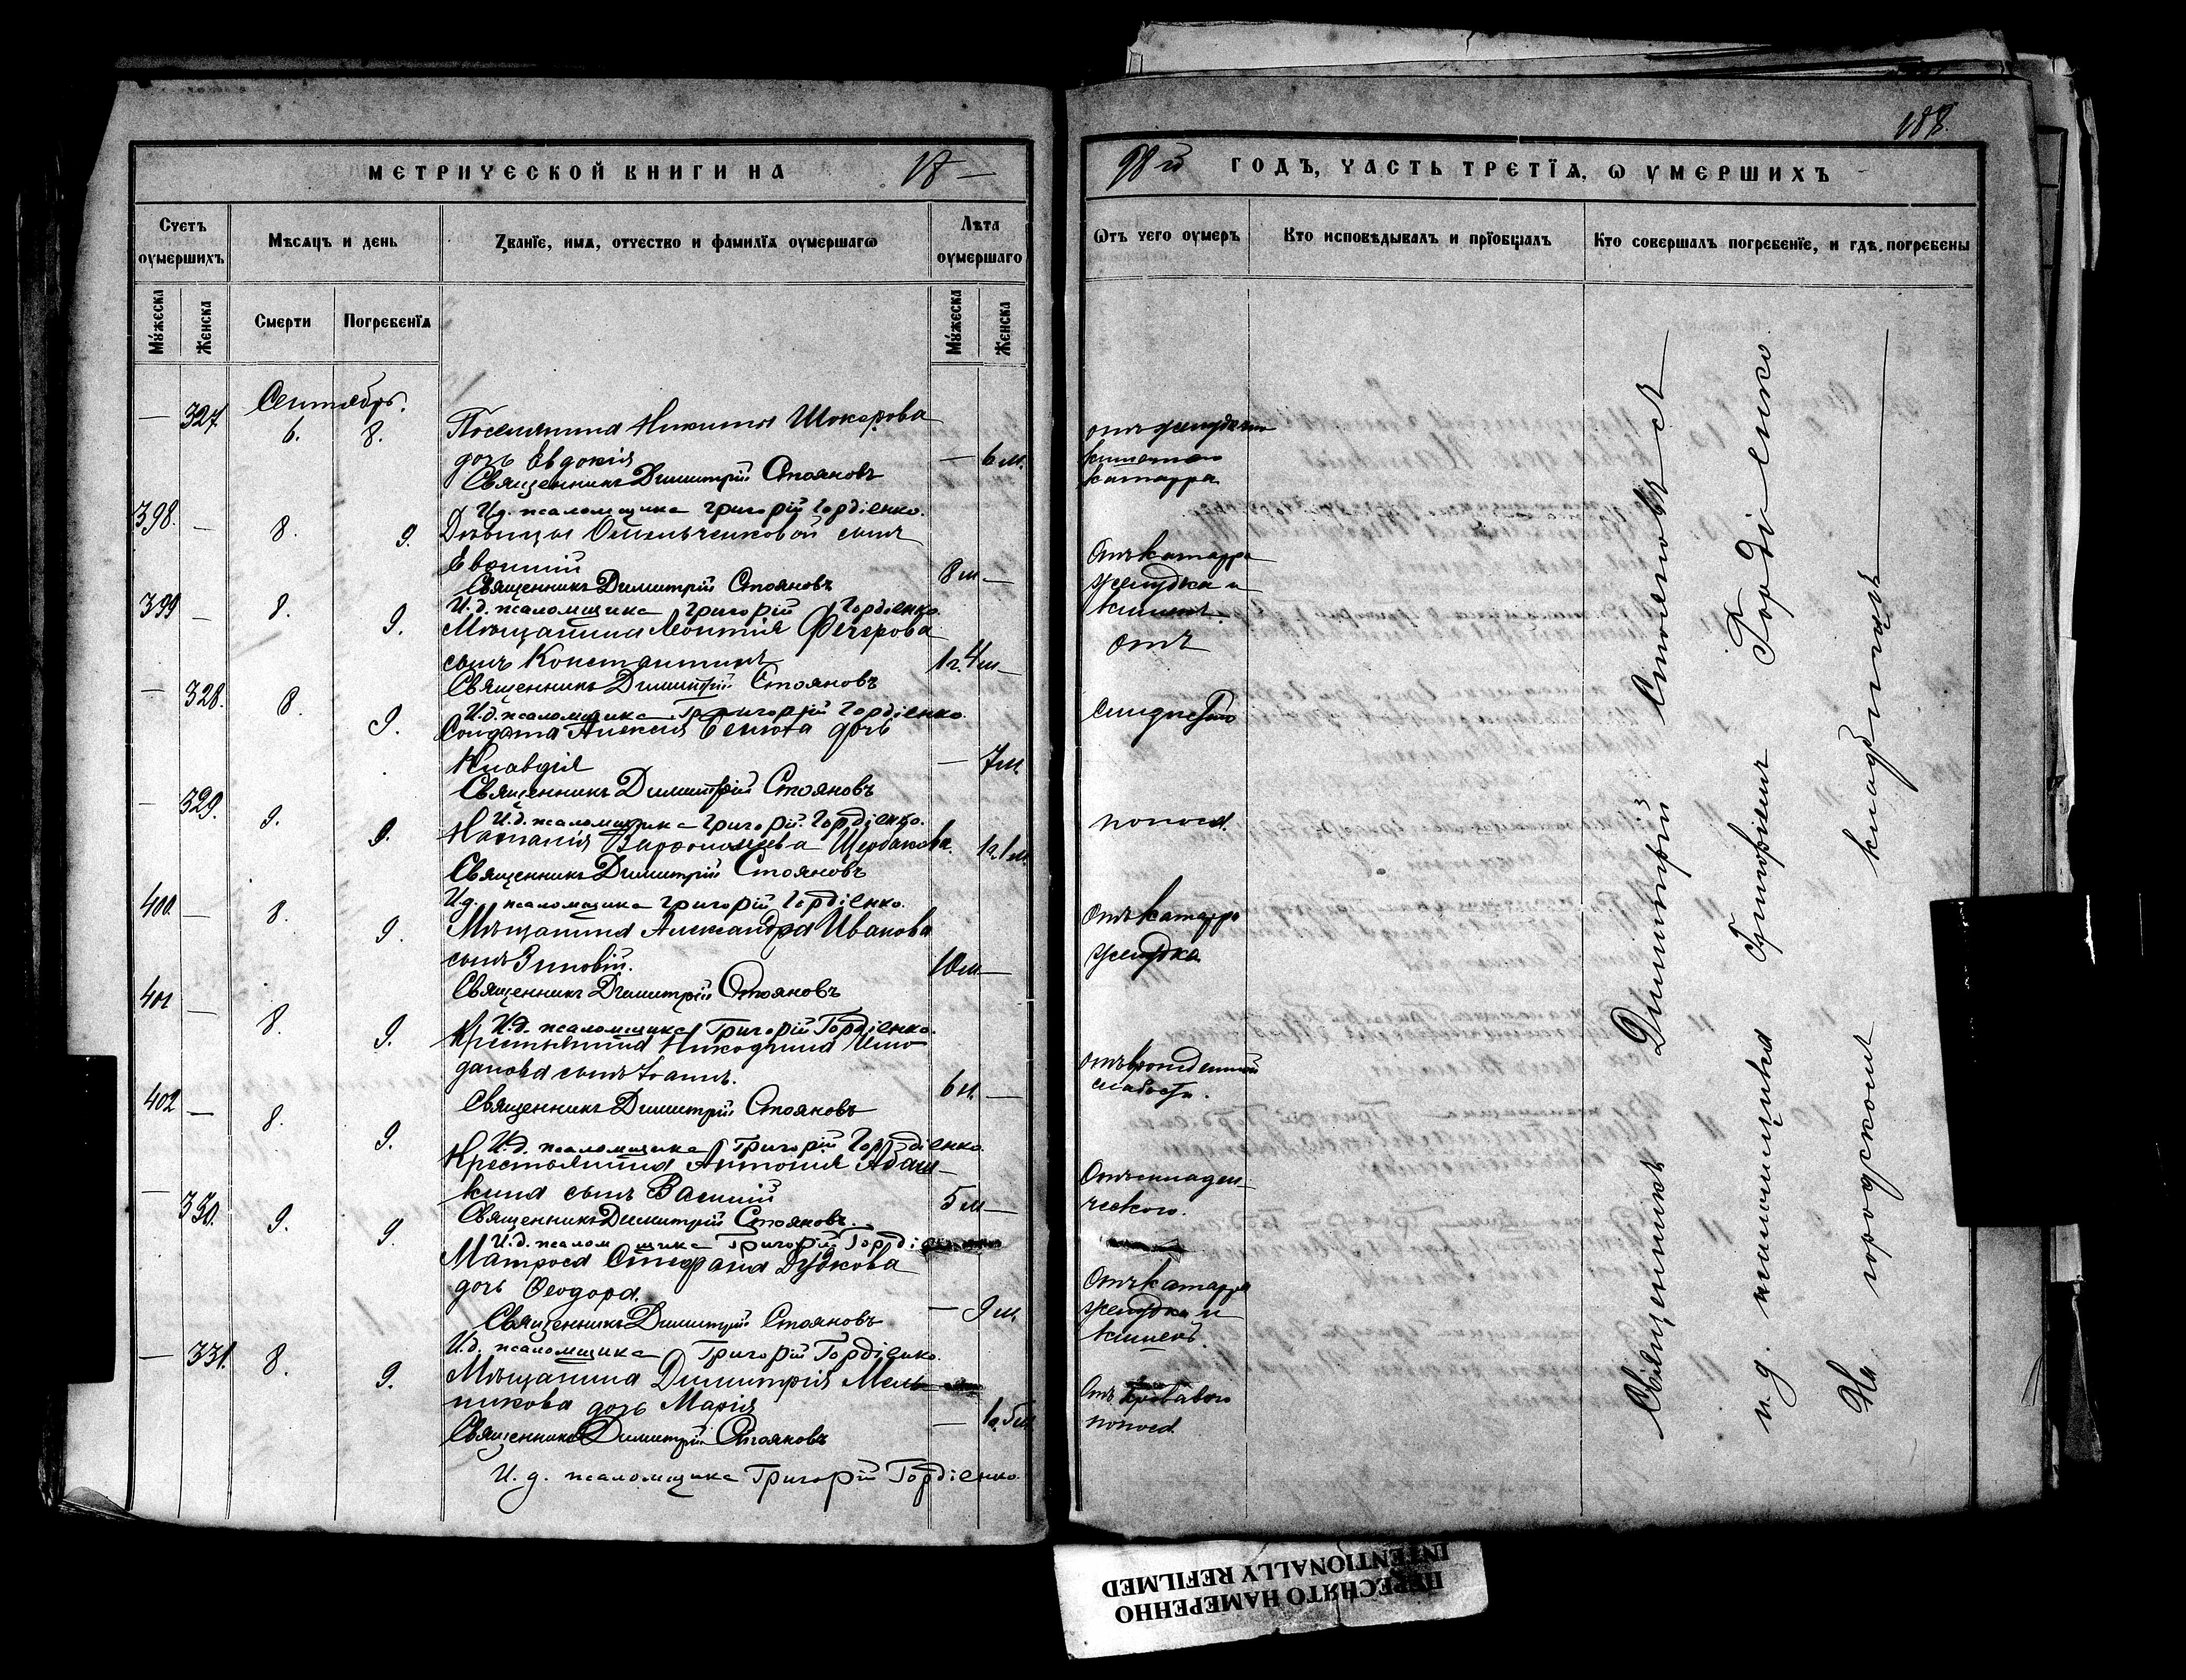 188.
МЕТРИЧЕСКОЙ КНИГИ НА 18—
98 й ГОДЪ, ЧАСТЬ ТРЕТЇѦ, Ѡ УМЕРШИХЪ
Счетъ оумершихъ
Мѣсѧцъ и день
Званїе, имѧ, отчество и фамилїѧ оумершагѡ
Лѣта оумершаго
Ѿтъ чего оумеръ
Кто исповѣдывалъ и прїобщалъ
Кто совершалъ погребенїе, и гдѣ погребены
Мужеска
Женска
Смерти
Погребенїѧ
Мужеска
Женска
Сентябрь.
— 327. 6. 8. Поселянина Никиты Шокарова
дочь Евдокія — 6 м.
отъ желудочно
кишечнаго
катарра
Священникъ Димитрій Стояновъ
И.д. псаломщика Григорій Гордіенко.
398. — 8. 9. Дѣвицы Омельченковой сынъ
Евфимій 8 м —
Отъ катарра
желудка и
кишекъ.
Священникъ Димитрій Стояновъ
И.д. псаломщика Григорій Гордіенко.
399 — 8. 9. Мѣщанина Леонтія
сынъ Константинъ 1 г. 4 м —
отъ
Священникъ Димитрій Стояновъ
И.д. псаломщика Григорій Гордіенко.
— 328. 8. 9. Солдата Алексія Сенюта дочь
Клавдія — 7 м.
Священникъ Димитрій Стояновъ
И.д. псаломщика Григорій Гордіенко.
— 329. 9. 9. Наталія Варфоломѣева Щербакова. 1 г. 1 м.
поноса.
Священникъ Димитрій Стояновъ
И.д. псаломщика Григорій Гордіенко.
400. — 8. 9. Мѣщанина Александра Иванова
сынъ Зиновій. 10 м —
Отъ катарра
желудка
Священникъ Димитрій Стояновъ
И.д. псаломщика Григорій Гордіенко.
401 — 8. 9. Крестьянина Никодима
данова сынъ Іоаннъ. 6 м. —
отъ врожденной
слабости.
Священникъ Димитрій Стояновъ
И.д. псаломщика Григорій Гордіенко.
402 — 8. 9. Крестьянина Антонія Абаш-
кина сынъ Василій 5 м —
Отъ младен-
ческого.
Священникъ Димитрій Стояновъ.
И.д. псаломщика Григорій
— 330. 9. 9. Матроса Стефана Дубкова
дочь Ѳеодора. — 9 м.
Отъ катарра
желудка и
кишекъ.
Священникъ Димитрій Стояновъ
И.д. псаломщика Григорій Гордіенко.
— 331. 8. 9. Мѣщанина Димитрія Мель-
никова дочь Марія — 1 г. 5 м.
Отъ кроваваго
поноса.
Священникъ Димитрій Стояновъ
И.д. псаломщика Григорій Гордіенко.
Священникъ Димитрій Стояновъ съ
и.д. псаломщика Григоріемъ Гордіенко.
На городскомъ кладбищѣ
ПЕРЕСНЯТО НАМЕРЕННО
INTENTIONALLY REFILMED